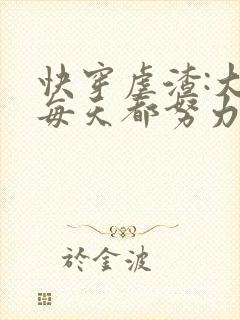 快穿虐渣:大
每天都努力
於金波